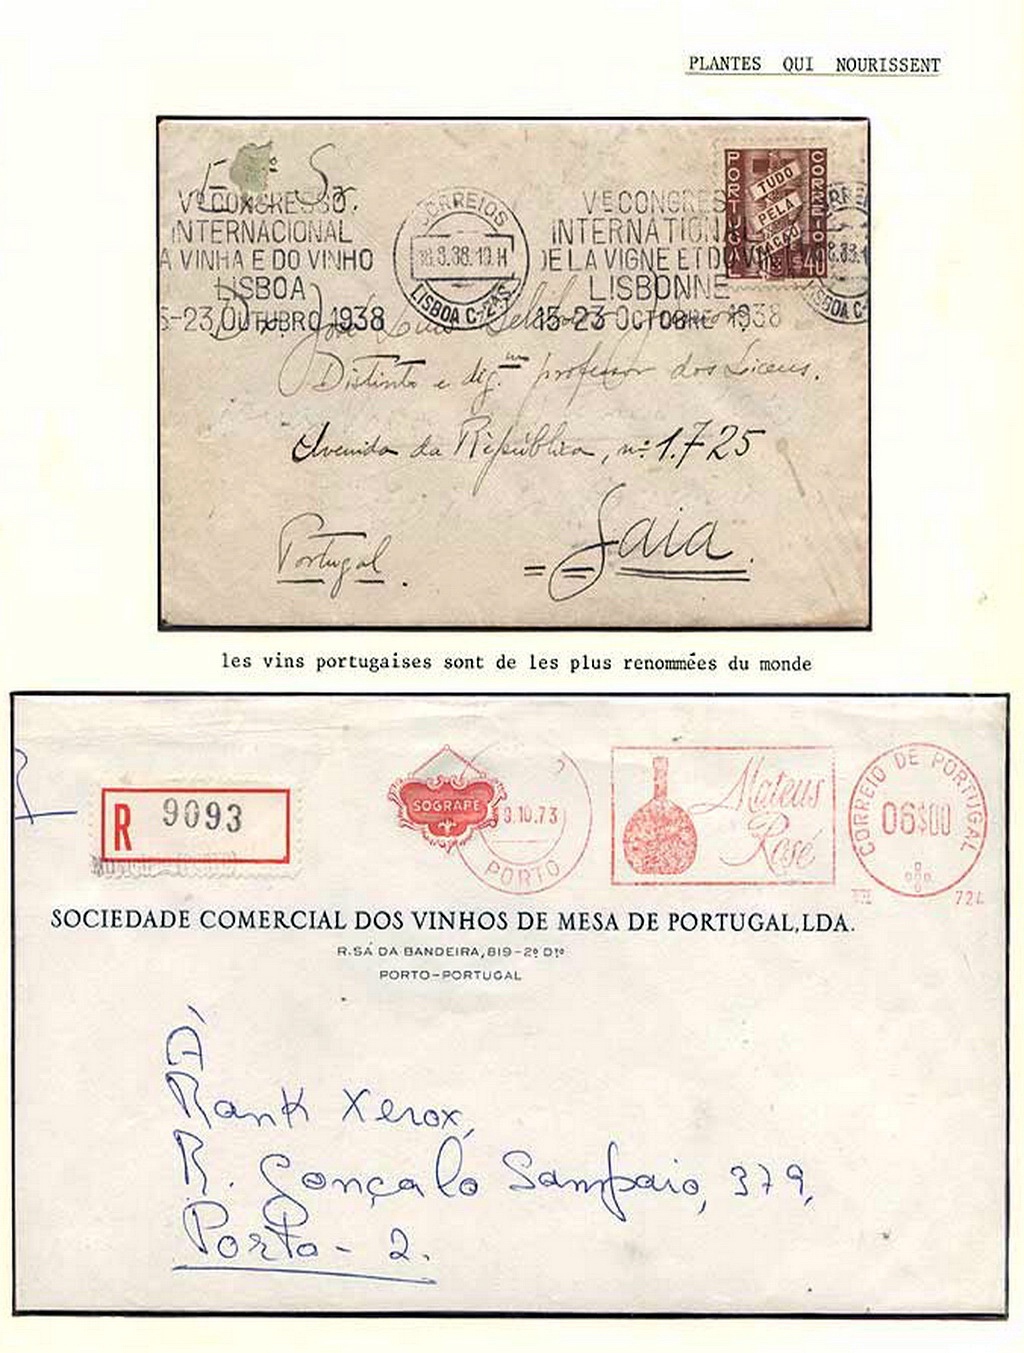 PLANTES QUI NOURISSENT
Sr.
Vº CONGRESSO
INTERNACIONAL
A VINHA E DO VINHO
LISBOA
5-23 OUTUBRO 1938
CORREIOS
18.8.38.19.H
LISBOA C-
Vᵉ CONGRES
INTERNATION
DE LA VIGNE ET DU VIN
LISBONNE
15-23 OCTOBRE 1938
PORTUGAL
CORREIO
TUDO
PELA
NAÇÃO
40
Dr. José Luis
Distinto e dig.mo professor dos Liceus.
Avenida da República, nº 1.725
Gaia
Portugal.
les vins portugaises sont de les plus renommées du monde
R 9093
SOGRAPE
9.10.73
PORTO
Mateus
Rosé
CORREIO DE PORTUGAL
06$00
724
SOCIEDADE COMERCIAL DOS VINHOS DE MESA DE PORTUGAL, LDA.
R. SÁ DA BANDEIRA, 819-2º Dtº
PORTO-PORTUGAL
À
Rank Xerox,
R. Gonçalo Sampaio, 379,
Porto - 2.